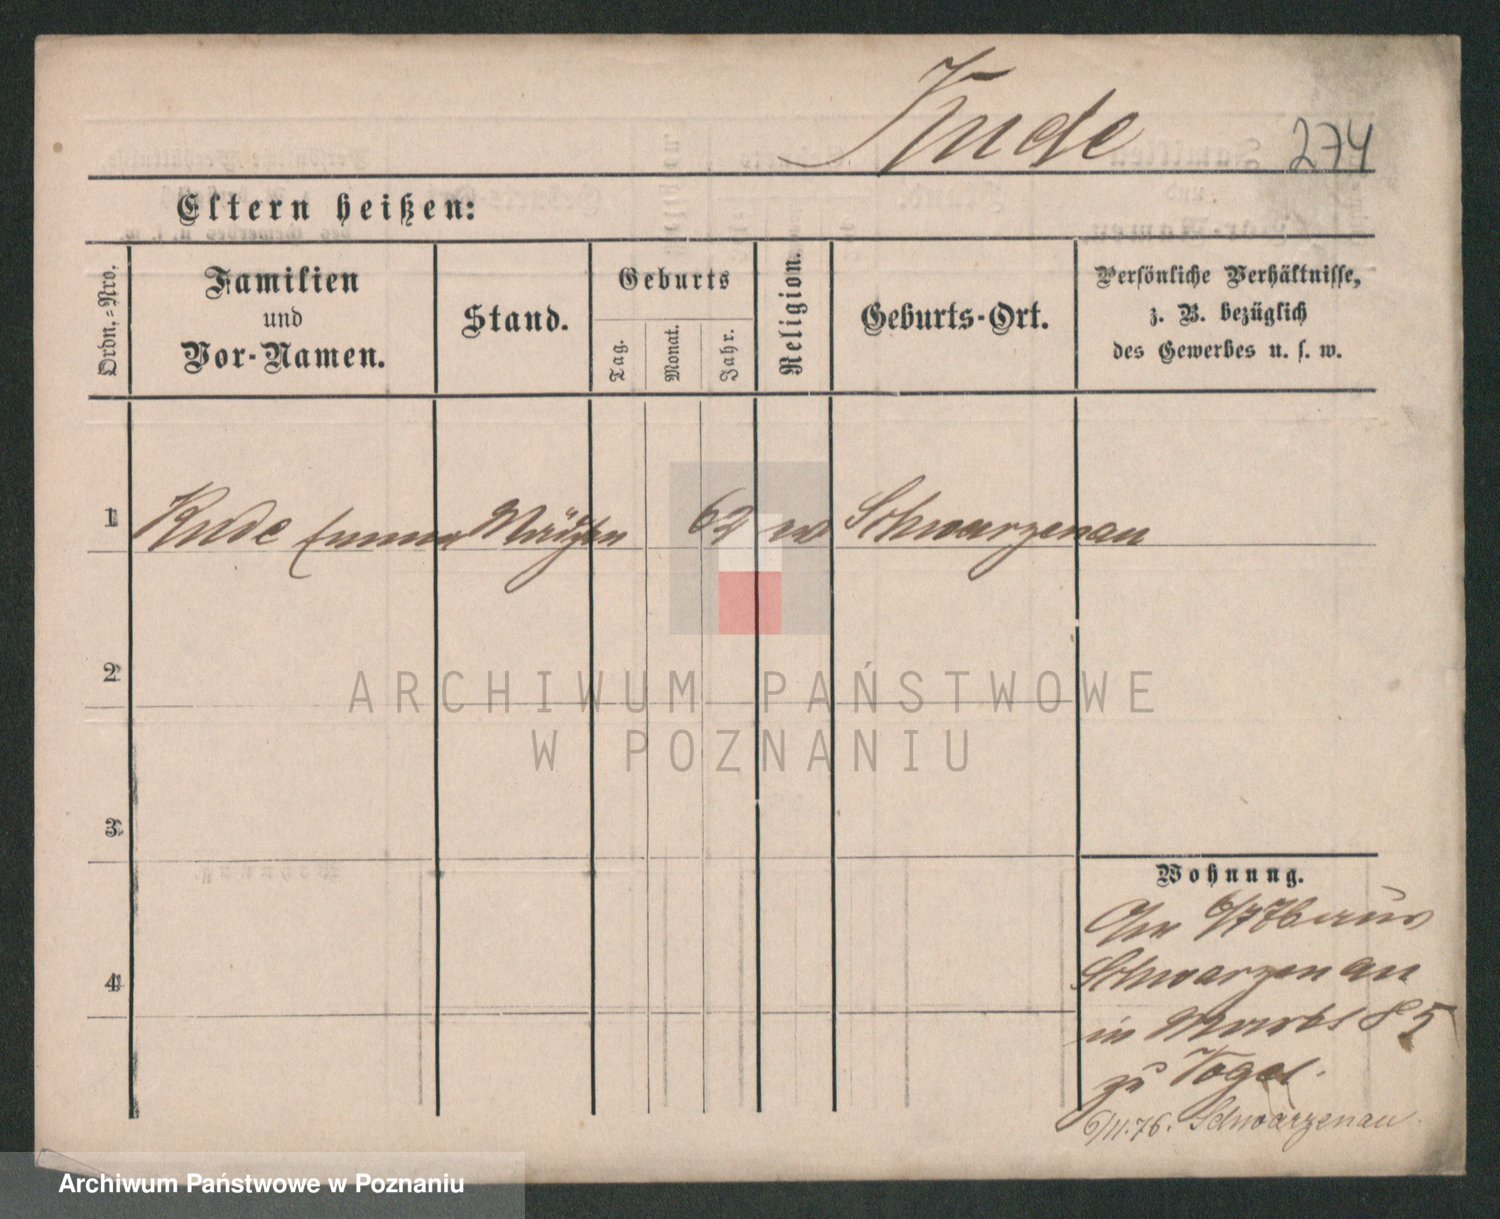 Kude 274
Eltern heißen:
Ordn.-Nro.
Familien
und
Vor-Namen.
Stand.
Geburts
Tag.
Monat.
Jahr.
Religion.
Geburts-Ort.
Persönliche Verhältnisse,
z. B. bezüglich
des Gewerbes u. s. w.
1 Kude Emma 62 Schwarzenau
2
3
4
Wohnung.
6/7 76 aus
Schwarzenau
in Markt 85
zu Vogel.
6/11.76. Schwarzenau
ARCHIWUM PAŃSTWOWE
W POZNANIU
Archiwum Państwowe w Poznaniu